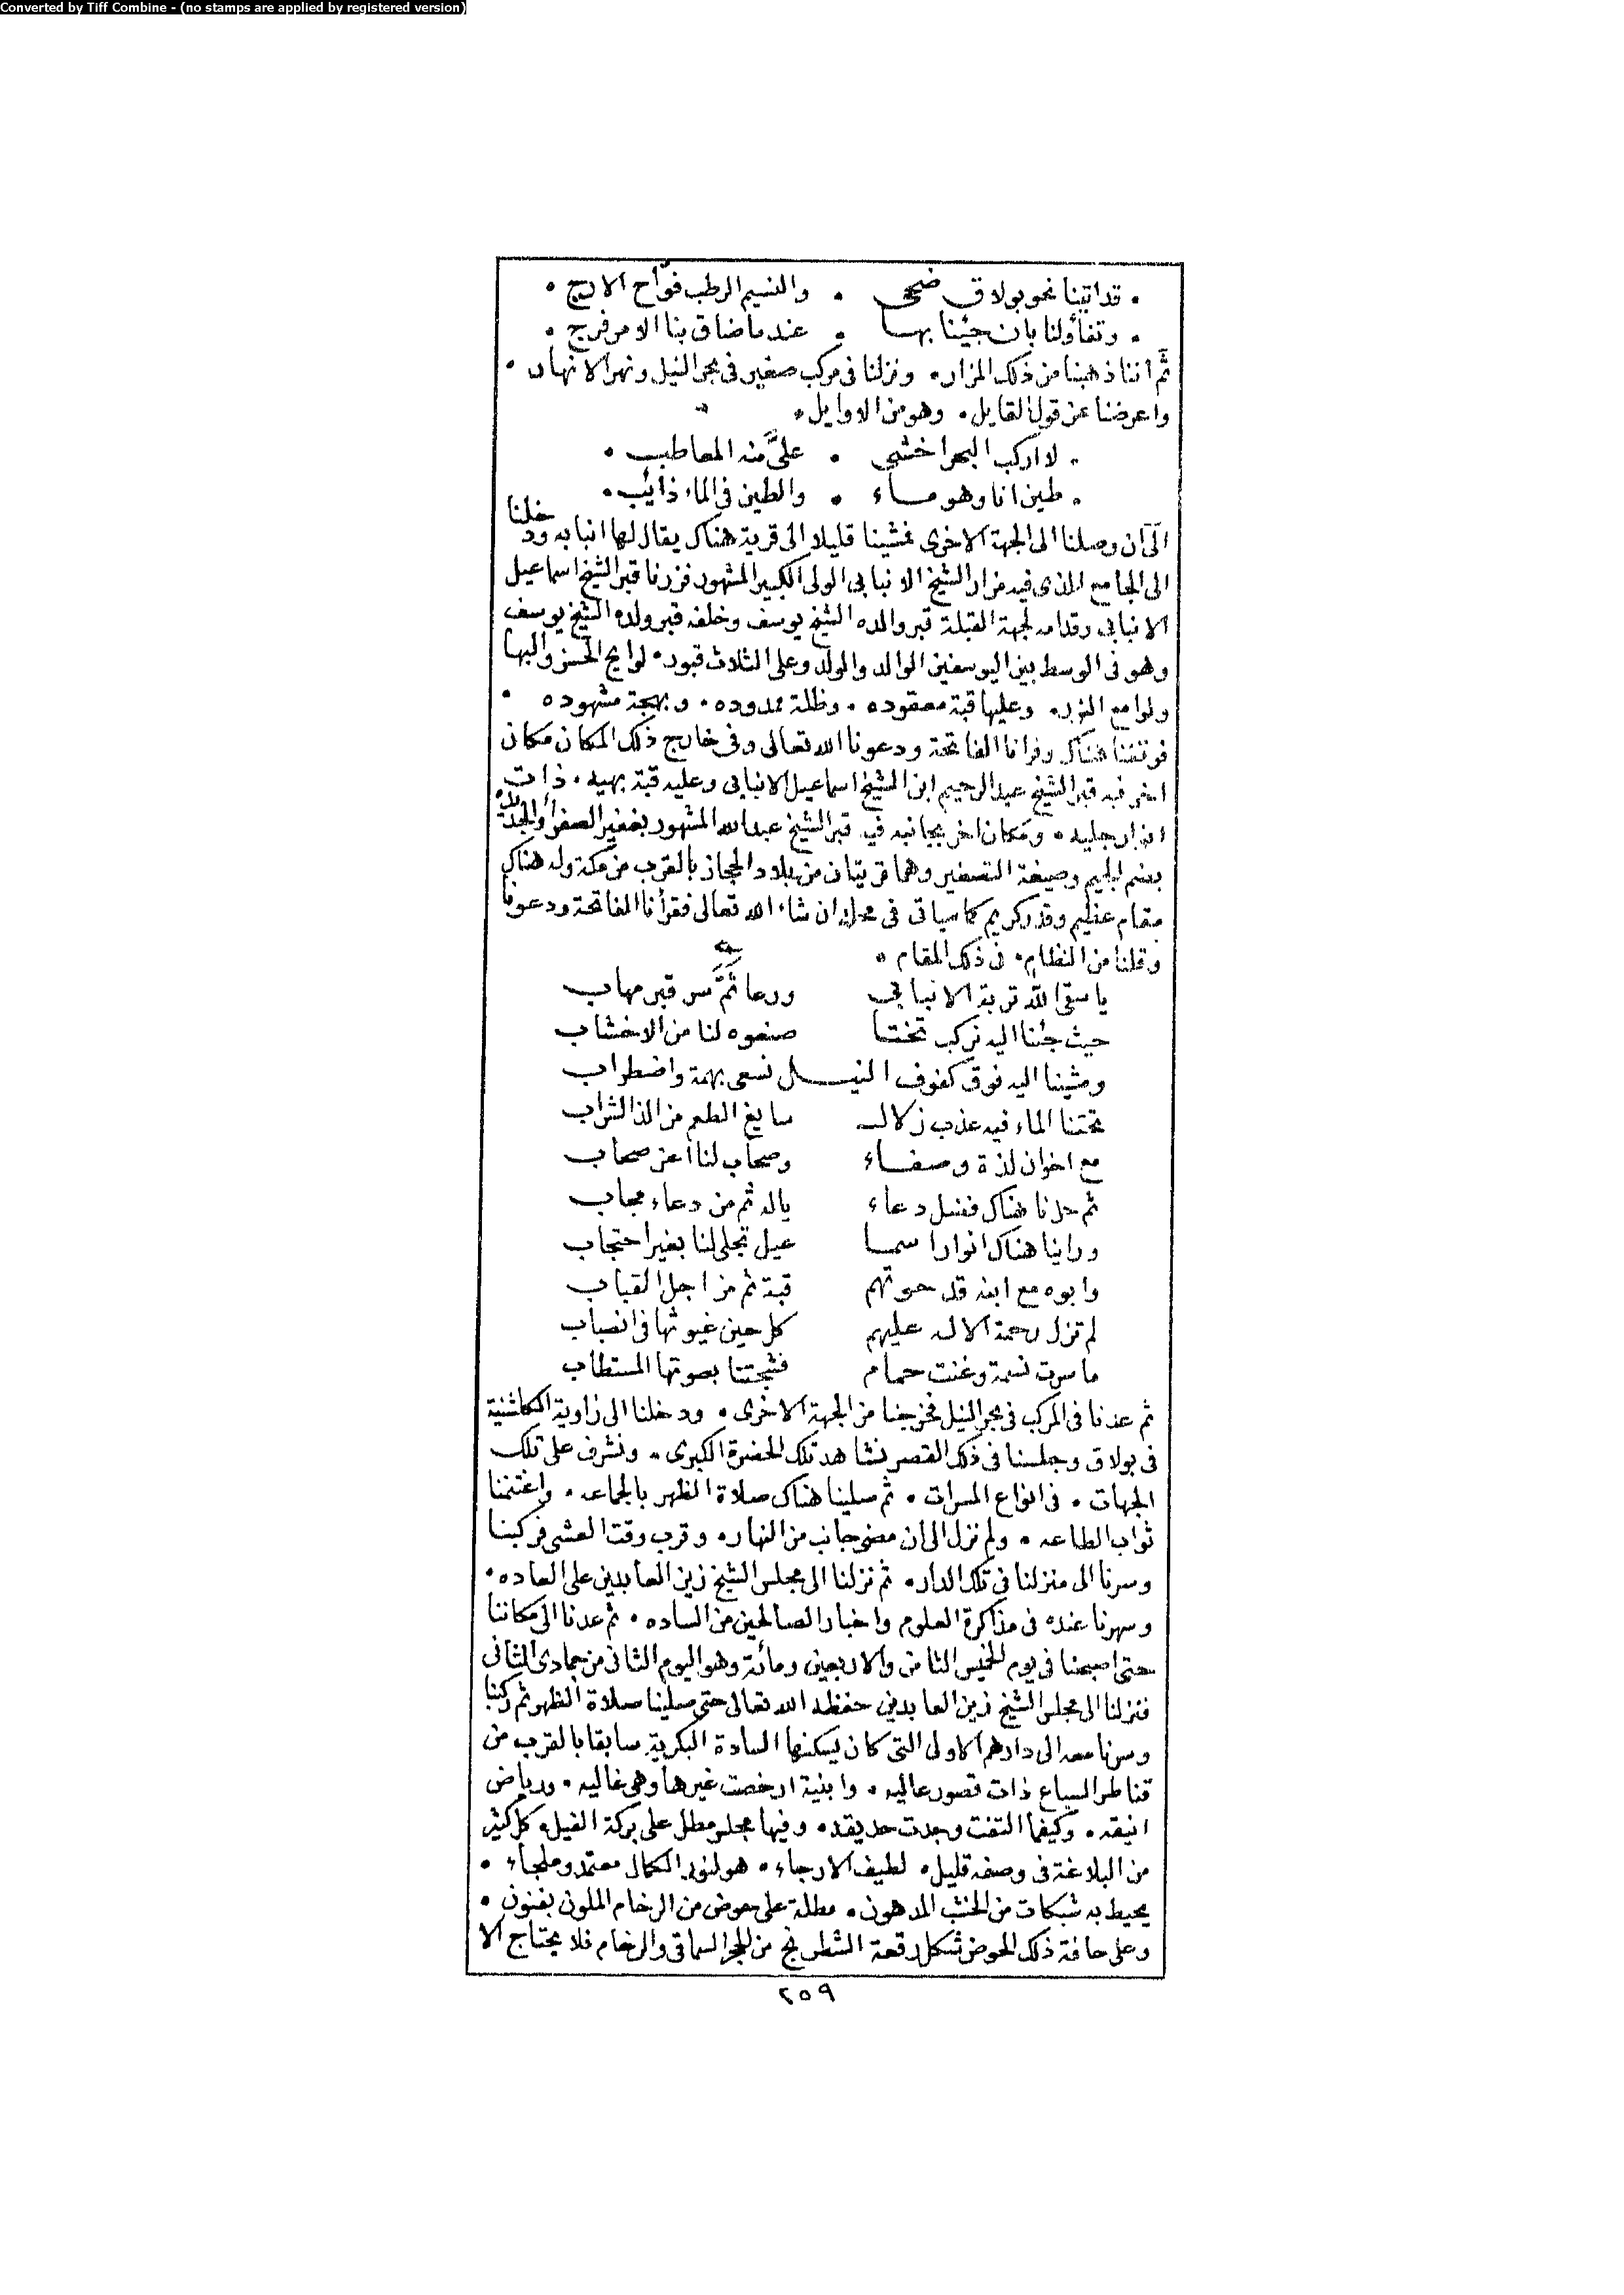 Converted by Tiff Combine - (no stamps are applied by registered version)
• قد اتينا نحو بولاق ضحى • والنسيم الرطب فوّاح الاريج •
• وتفاؤلنا بان جئنا بها • عند ما ضاق بنا الامر فرج •
ثم اننا ذهبنا من ذلك المزار • ونزلنا فى مركب صغير فى بحر النيل ونهر الانهار •
واعرضنا عن قول القايل • وهو من الاوايل •
• لا اركب البحر اخشى • علىّ منه المعاطب •
• طين انا وهو ماء • والطين فى الماء ذائب •
الى ان وصلنا الى الجهة الاخرى فمشينا قليلا الى قرية هناك يقال لها انبابه ودخلنا
الى الجامع الذى فيه مزار الشيخ الانبابى الولى الكبير المشهور فزرنا قبر الشيخ اسماعيل
الانبابى وقدامه لجهة القبلة قبر والده الشيخ يوسف وخلفه قبر ولده الشيخ يوسف
وهو فى الوسط بين اليوسفين الوالد والولد وعلى الثلاث قبور • لوايح الحسن والبها
ولوامع النور • وعليها قبة معقوده • وظلة ممدوده • وبهجة مشهوده •
فوقفنا هناك وقرانا الفاتحة ودعونا الله تعالى وفى خارج ذلك المكان مكان
اخر فيه قبر الشيخ عبد الرحيم ابن الشيخ اسماعيل الانبابى وعليه قبة بهيه • ذات
انوار جليه • ومكان اخر بجانبه فيه قبر الشيخ عبد الله المشهور بخفير الصفرا والجديدة
بضم الجيم وصيغة التصغير وهما قريتان من بلاد الحجاز بالقرب من مكة وله هناك
مقام عظيم وقدر كريم كما سياتى فى محله ان شاء الله تعالى فقرأنا الفاتحة ودعونا
وقلنا من النظام • فى ذلك المقام •
يا سقى الله تربة الانبابى ورعا ثَمَّ سر قبر مهاب
حيث جئنا اليه نركب تختا صنعوه لنا من الاخشاب
ومشينا اليه فوق كفوف النيل نسعى بهمة واضطراب
تحتنا الماء فيه عذب زلال سايغ الطعم من الذ الشراب
مع اخوان لذة وصفاء وصحاب لنا اعز صحاب
ثم حزنا هناك فضل دعاء ياله ثم من دعاء مجاب
وراينا هناك انوار اسما عيل تجلى لنا بغير احتجاب
وابوه مع ابنه قد حوتهم قبة ثم من اجل القباب
لم تزل رحمة الاله عليهم كل حين غيوثها فى انصباب
ما سرت نسمة وغنت حمام فشجتنا بصوتها المستطاب
ثم عدنا فى المركب فى بحر النيل فخرجنا من الجهة الاخرى • ودخلنا الى زاوية الكلشنية
فى بولاق وجلسنا فى ذلك القصر نشاهد تلك الحضرة الكبرى • ونشرف على تلك
الجهات • فى انواع المسرات • ثم صلينا هناك صلاة الظهر بالجماعه • واغتنمنا
ثواب الطاعه • ولم نزل الى ان مضى جانب من النهار • وقرب وقت العشى فركبنا
وسرنا الى منزلنا فى تلك الدار • ثم نزلنا الى مجلس الشيخ زين العابدين على العاده •
وسهرنا عنده فى مذاكرة العلوم واخبار الصالحين من الساده • ثم عدنا الى مكاننا
حتى اصبحنا فى يوم الخميس الثامن والاربعين ومائة وهو اليوم الثانى من جمادى الثانى
فنزلنا الى مجلس الشيخ زين العابدين حفظه الله تعالى حتى صلينا صلاة الظهر ثم ركبنا
وسرنا معه الى دارهم الاولى التى كان يسكنها السادة البكرية سابقا بالقرب من
قناطر السباع ذات قصور عاليه • وابنية ارخصت غيرها وهى غاليه • ورياض
انيقه • وكيفما التفت وجدت حديقه • وفيها مجلس مطل على بركة الفيل • كل كثير
من البلاغة فى وصفه قليل • لطيف الارجاء • هو لنور الكمال معتمد وملجاء •
يحيط به شبكات من الخشب المدهون • مطلة على حوض من الرخام الملون بفنون •
وعلى حافة ذلك الحوض شكل رقعة الشطرنج من الحجر السماقى والرخام فلا يحتاج الا
٢٥٩